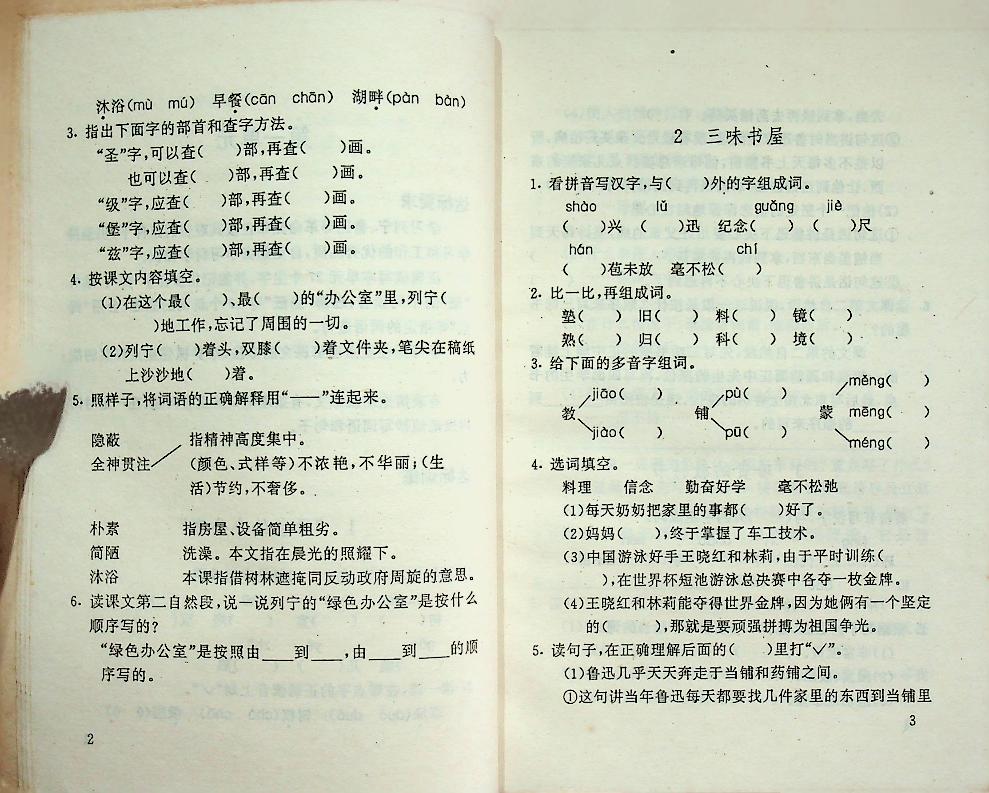 沐浴(mù mú) 早餐(cān chān) 湖畔(pàn bàn)
3. 指出下面字的部首和查字方法。
“圣”字,可以查( )部,再查( )画。
也可以查( )部,再查( )画。
“级”字,应查( )部,再查( )画。
“堡”字,应查( )部,再查( )画。
“兹”字,应查( )部,再查( )画。
4. 按课文内容填空。
(1)在这个最( )、最( )的“办公室”里,列宁(
)地工作,忘记了周围的一切。
(2)列宁( )着头,双膝( )着文件夹,笔尖在稿纸
上沙沙地( )着。
5. 照样子,将词语的正确解释用“——”连起来。
隐蔽 指精神高度集中。
全神贯注 (颜色、式样等)不浓艳,不华丽;(生
活)节约,不奢侈。
朴素 指房屋、设备简单粗劣。
简陋 洗澡。本文指在晨光的照耀下。
沐浴 本课指借树林遮掩同反动政府周旋的意思。
6. 读课文第二自然段,说一说列宁的“绿色办公室”是按什么
顺序写的?
“绿色办公室”是按照由___到___,由___到___的顺
序写的。
2
2 三味书屋
1. 看拼音写汉字,与( )外的字组成词。
shào lǔ guǎng jiè
( )兴 ( )迅 纪念( ) ( )尺
hán chí
( )苞未放 毫不松( )
2. 比一比,再组成词。
塾( ) 旧( ) 料( ) 镜( )
熟( ) 归( ) 科( ) 境( )
3. 给下面的多音字组词。
jiāo( ) pù( ) měng( )
教 铺 蒙 mēng( )
jiào( ) pū( ) méng( )
4. 选词填空。
料理 信念 勤奋好学 毫不松弛
(1)每天奶奶把家里的事都( )好了。
(2)妈妈( ),终于掌握了车工技术。
(3)中国游泳好手王晓红和林莉,由于平时训练(
),在世界杯短池游泳总决赛中各夺一枚金牌。
(4)王晓红和林莉能夺得世界金牌,因为她俩有一个坚定
的( ),那就是要顽强拼搏为祖国争光。
5. 读句子,在正确理解后面的( )里打“✓”。
(1)鲁迅几乎天天奔走于当铺和药铺之间。
①这句讲当年鲁迅每天都要找几件家里的东西到当铺里
3